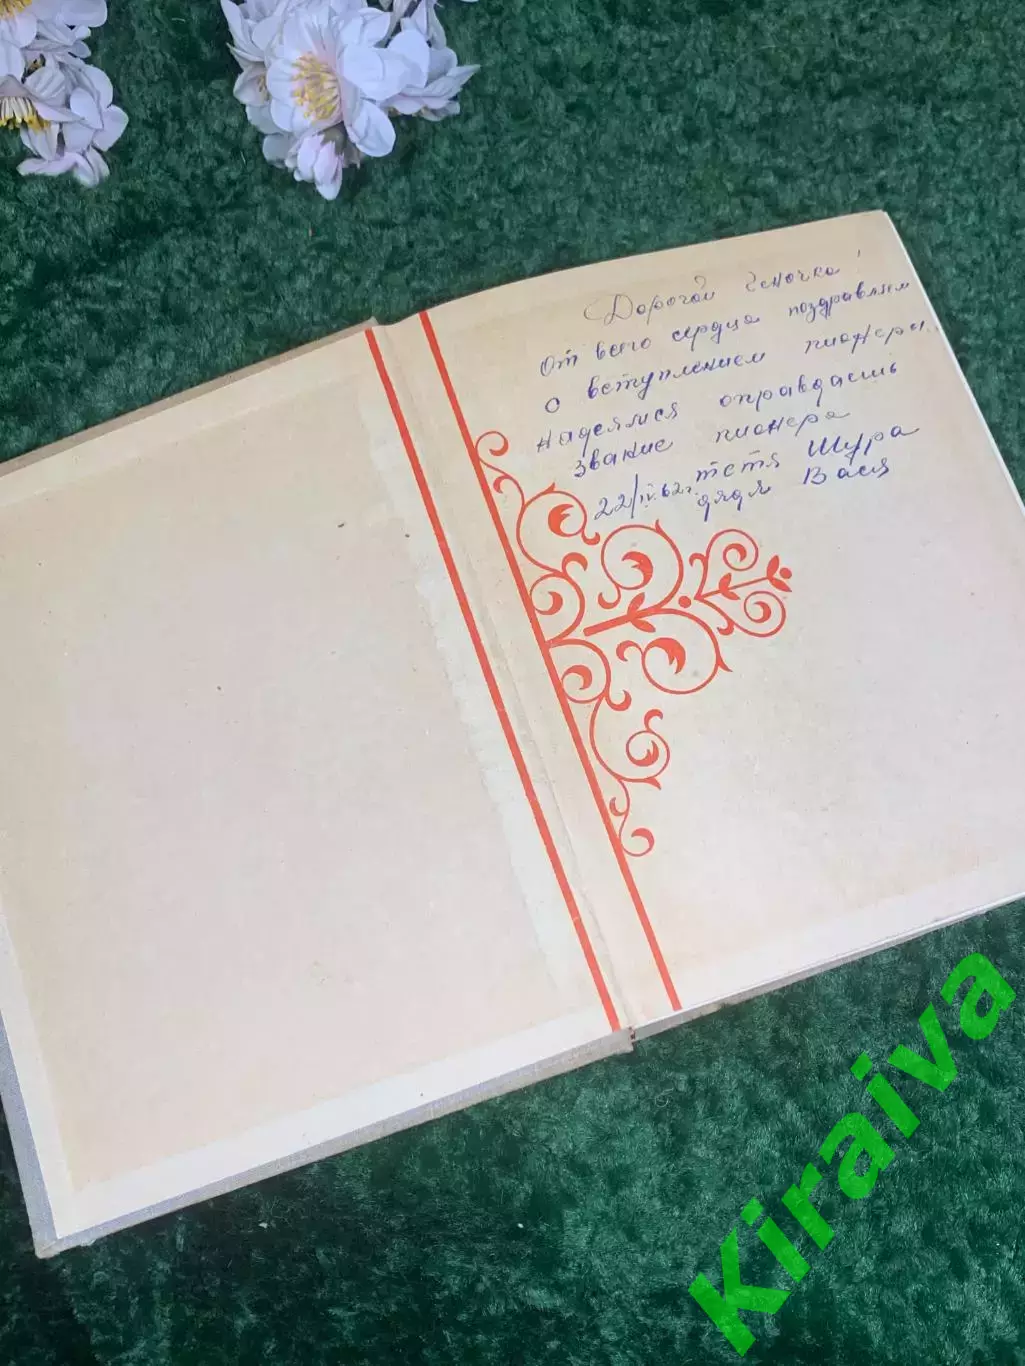 Дорогой Геночка!
От всего сердца поздравляем
с вступлением пионеры..
Надеемся оправдаешь
звание пионера
22/IV.62г. тетя Шура
дядя Вася
Kiraiva